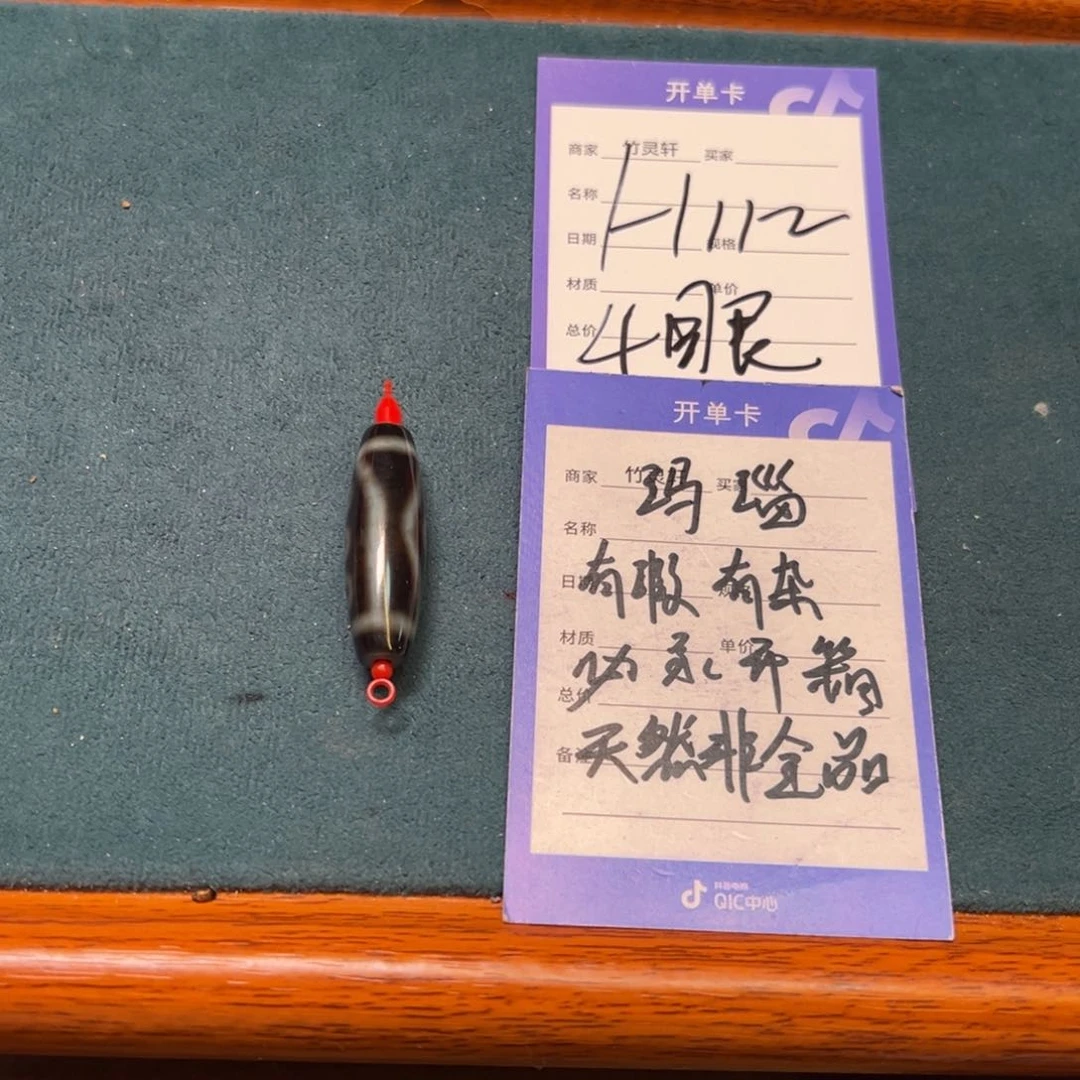 开单卡
商家 竹灵轩 买家
名称
H1112
日期 规格
材质 单价
总价
4眼
开单卡
商家 竹灵轩 买家
玛瑙
名称
日期
有瑕有杂
材质 单价
总价
天然非全品
抖音电商
QIC中心